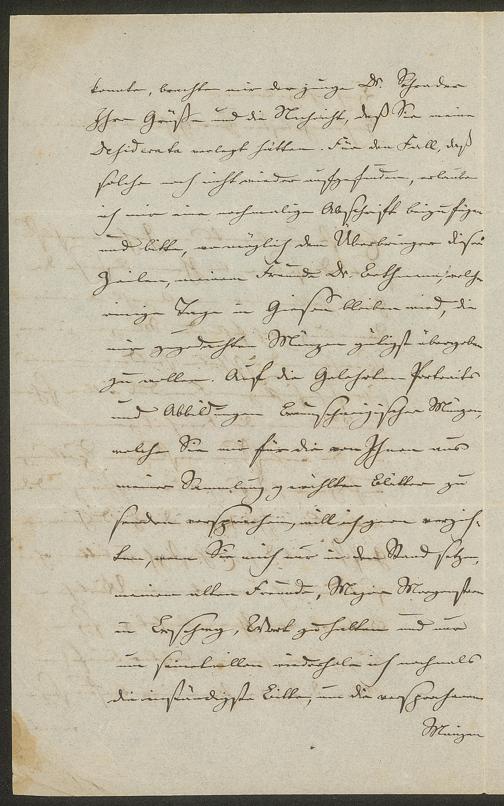 konnte, brachte mir der junge Dr. Schrader
Ihre Grüße und die Nachricht, daß Sie meine
Desiderata verlegt hätten. Für den Fall, daß
solche noch nicht wieder aufgefunden, erlaube
ich mir eine nochmalige Abschrift beizufügen
und bitte, womöglich dem Überbringer dieser
Zeilen, meinem Freunde Dr. welcher
einige Tage in Gießen bleiben wird, die
mir zugedachten Münzen gütigst übergeben
zu wollen. Auf die Gelehrten-Portraits
und Abbildungen Braunschweigischer Münzen,
welche Sie mir für die von Ihnen aus
meiner Sammlung gewählten Blätter zu
senden versprachen, will ich gern verzich-
ten, wenn Sie mich nur in den Stand setzen,
meinem alten Freunde, Major
in Wort zu halten und nur
um seinetwillen wiederhole ich nochmals
die inständigste Bitte, um die versprochenen
Münzen